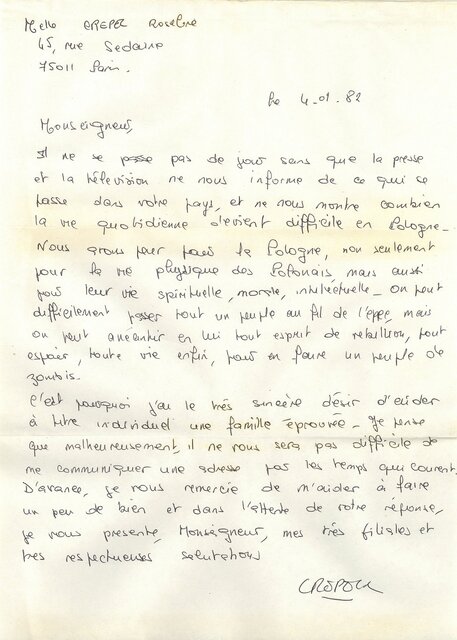 Melle CREPEL Roseline
45, rue Sedaine
75011 Paris.
le 4-01-82
Monseigneur,
Il ne se passe pas de jour sans que la presse
et la télévision ne nous informe de ce qui se
passe dans votre pays, et ne nous montre combien
la vie quotidienne devient difficile en Pologne.
Nous avons peur pour la Pologne, non seulement
pour la vie physique des Polonais mais aussi
pour leur vie spirituelle, morale, intellectuelle _ On peut
difficilement passer tout un peuple au fil de l'épée, mais
on peut anéantir en lui tout esprit de rebellion, tout
espoir, toute vie enfin, pour en faire un peuple de
zombis.
C'est pourquoi j'ai le très sincère désir d'aider
à titre individuel une famille éprouvée _ Je pense
que malheureusement, il ne vous sera pas difficile de
me communiquer une adresse par les temps qui courent.
D'avance, je vous remercie de m'aider à faire
un peu de bien et dans l'attente de votre réponse,
je vous présente, Monseigneur, mes très filiales et
très respectueuses salutations